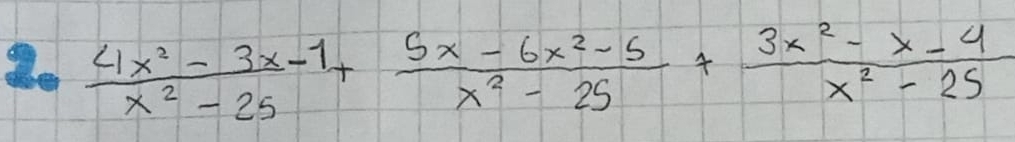 2. \frac{4x^2 - 3x - 1}{x^2 - 25} + \frac{5x - 6x^2 - 5}{x^2 - 25} + \frac{3x^2 - x - 4}{x^2 - 25}